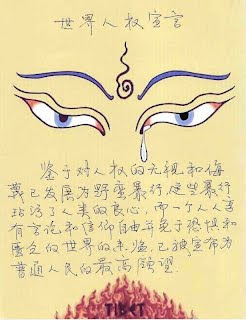 世界人权宣言
鉴于对人权的无视和侮
蔑已发展为野蛮暴行,这些暴行
玷污了人类的良心,而一个人人享
有言论和信仰自由并免予恐惧和
匮乏的世界的来临,已被宣布为
普通人民的最高愿望.
TIBET